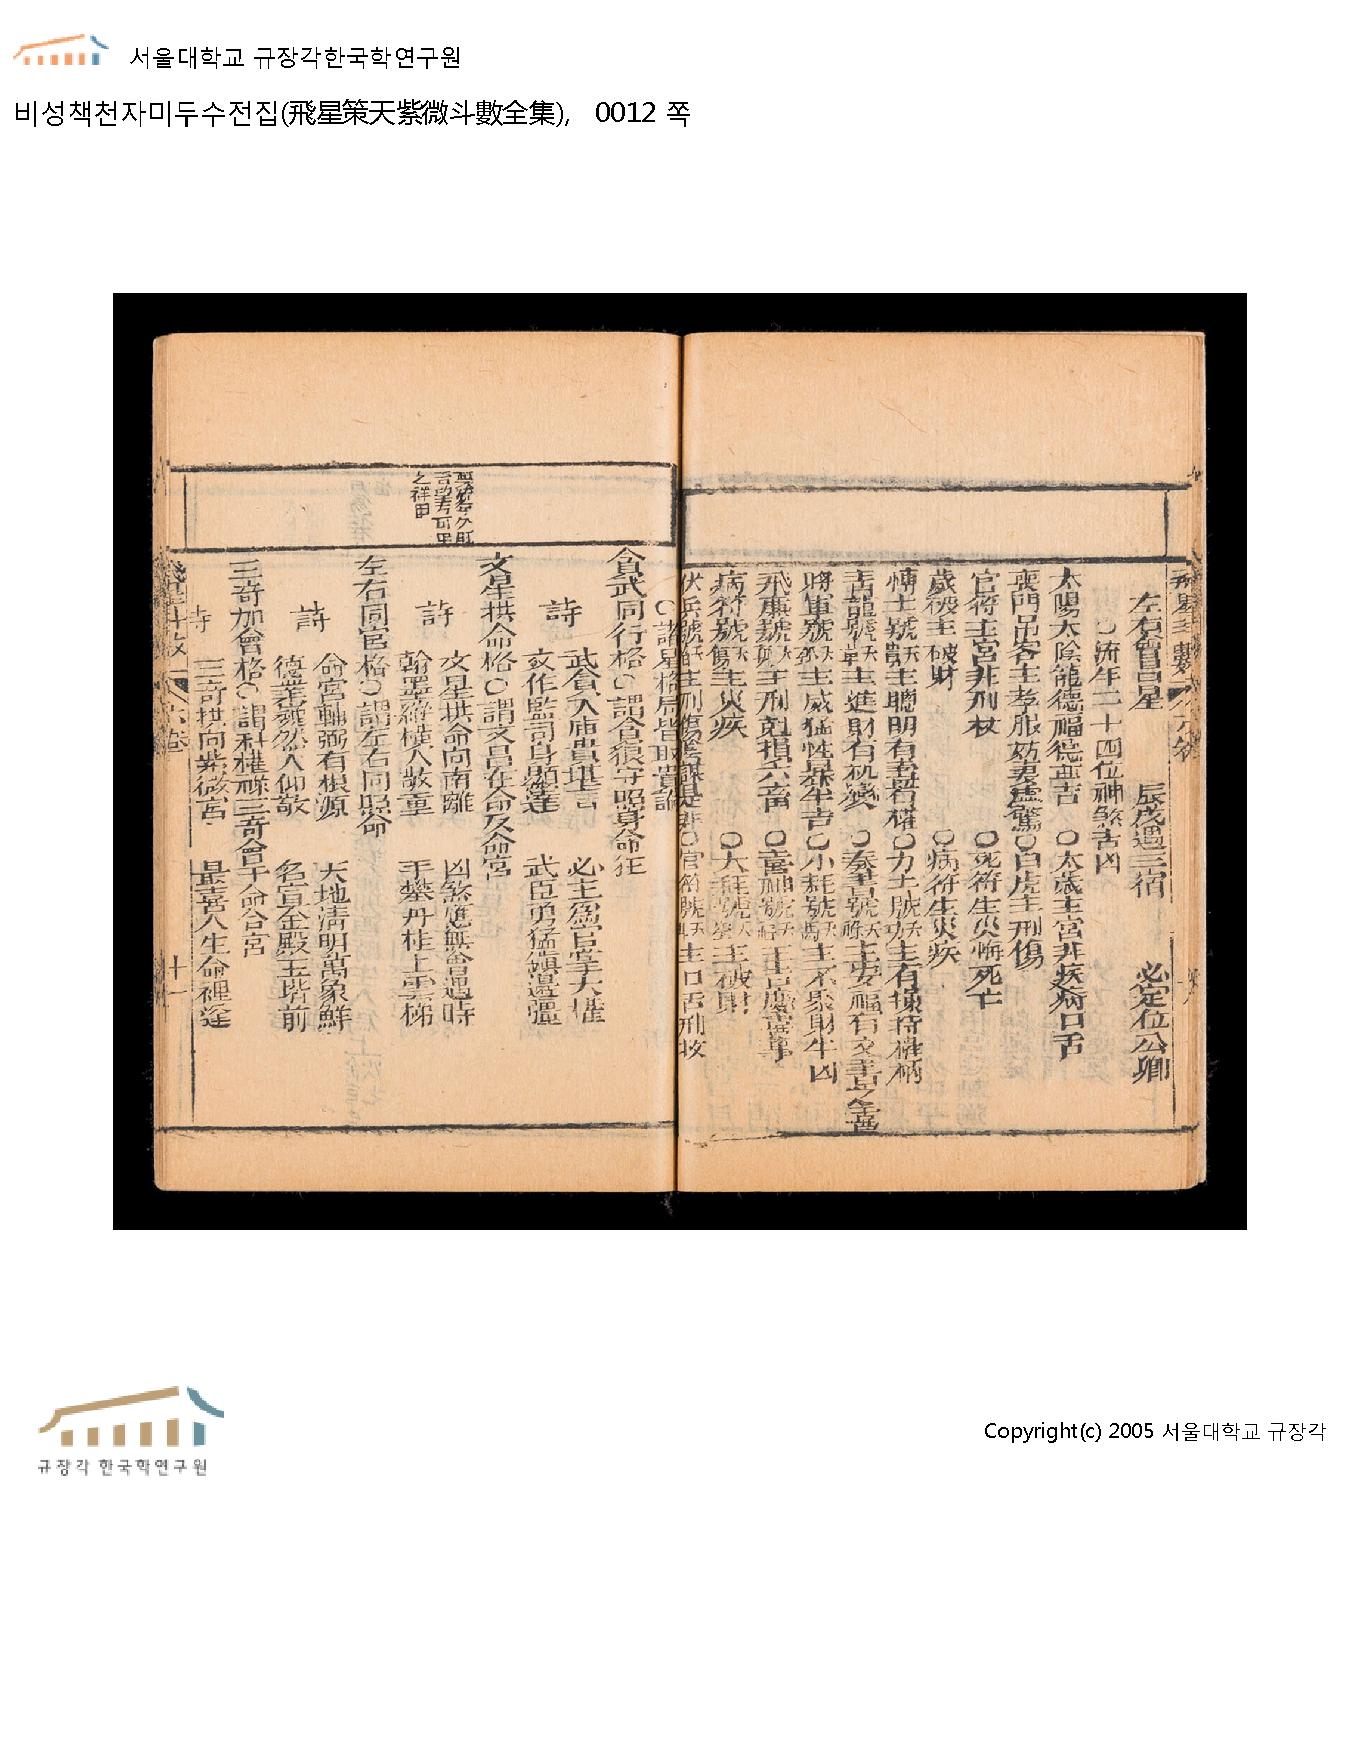 서울대학교 규장각한국학연구원
비성책천자미두수전집(飛星策天紫微斗數全集), 0012 쪽
左右會昌星 辰戌遇三宿 必定位公卿
○流年二十四位神煞吉凶
太陽太陰龍德福德主吉 ○太歲主官非疾病口舌
喪門吊客主孝服 虛驚○白虎主刑傷
官符主官非刑杖 ○死符主災悔死亡
歲破主破財 ○病符主災疾
博士號天 主聰明有 權○力士號天 主有 持權柄
青龍號天 主進財有 ○奏書號天 主安福有文書之喜
將軍號天 主威猛性暴半吉○小耗號天 主不聚財半凶
飛廉號天 主刑剋損六畜 ○喜神號天 主吉慶喜事
病符號 主災疾 ○大耗號天 主破財
伏兵號天 主刑傷 是非○官符號天 主口舌刑杖
○諸星格局皆取貴論
貪武同行格○謂貪狼守照身命
詩 武貪入廟貴堪言 必主 官掌大權
文作監司身顯達 武臣勇猛鎮邊疆
文星拱命格○謂文昌在命及命宮
詩 文星拱命向南離 凶煞應無會遇時
翰墨 橫人敬重 平攀丹桂上雲梯
左右同宮格○謂左右同照命
詩 命宮輔弼有根源 天地清明萬象鮮
德業 然人仰敬 名宣金殿玉堦前
三奇加會格○謂科權祿三奇會于命 宮
詩 三奇拱向紫微宮 最喜人生命裡逢
十一
규장각 한국학연구원
Copyright(c) 2005 서울대학교 규장각